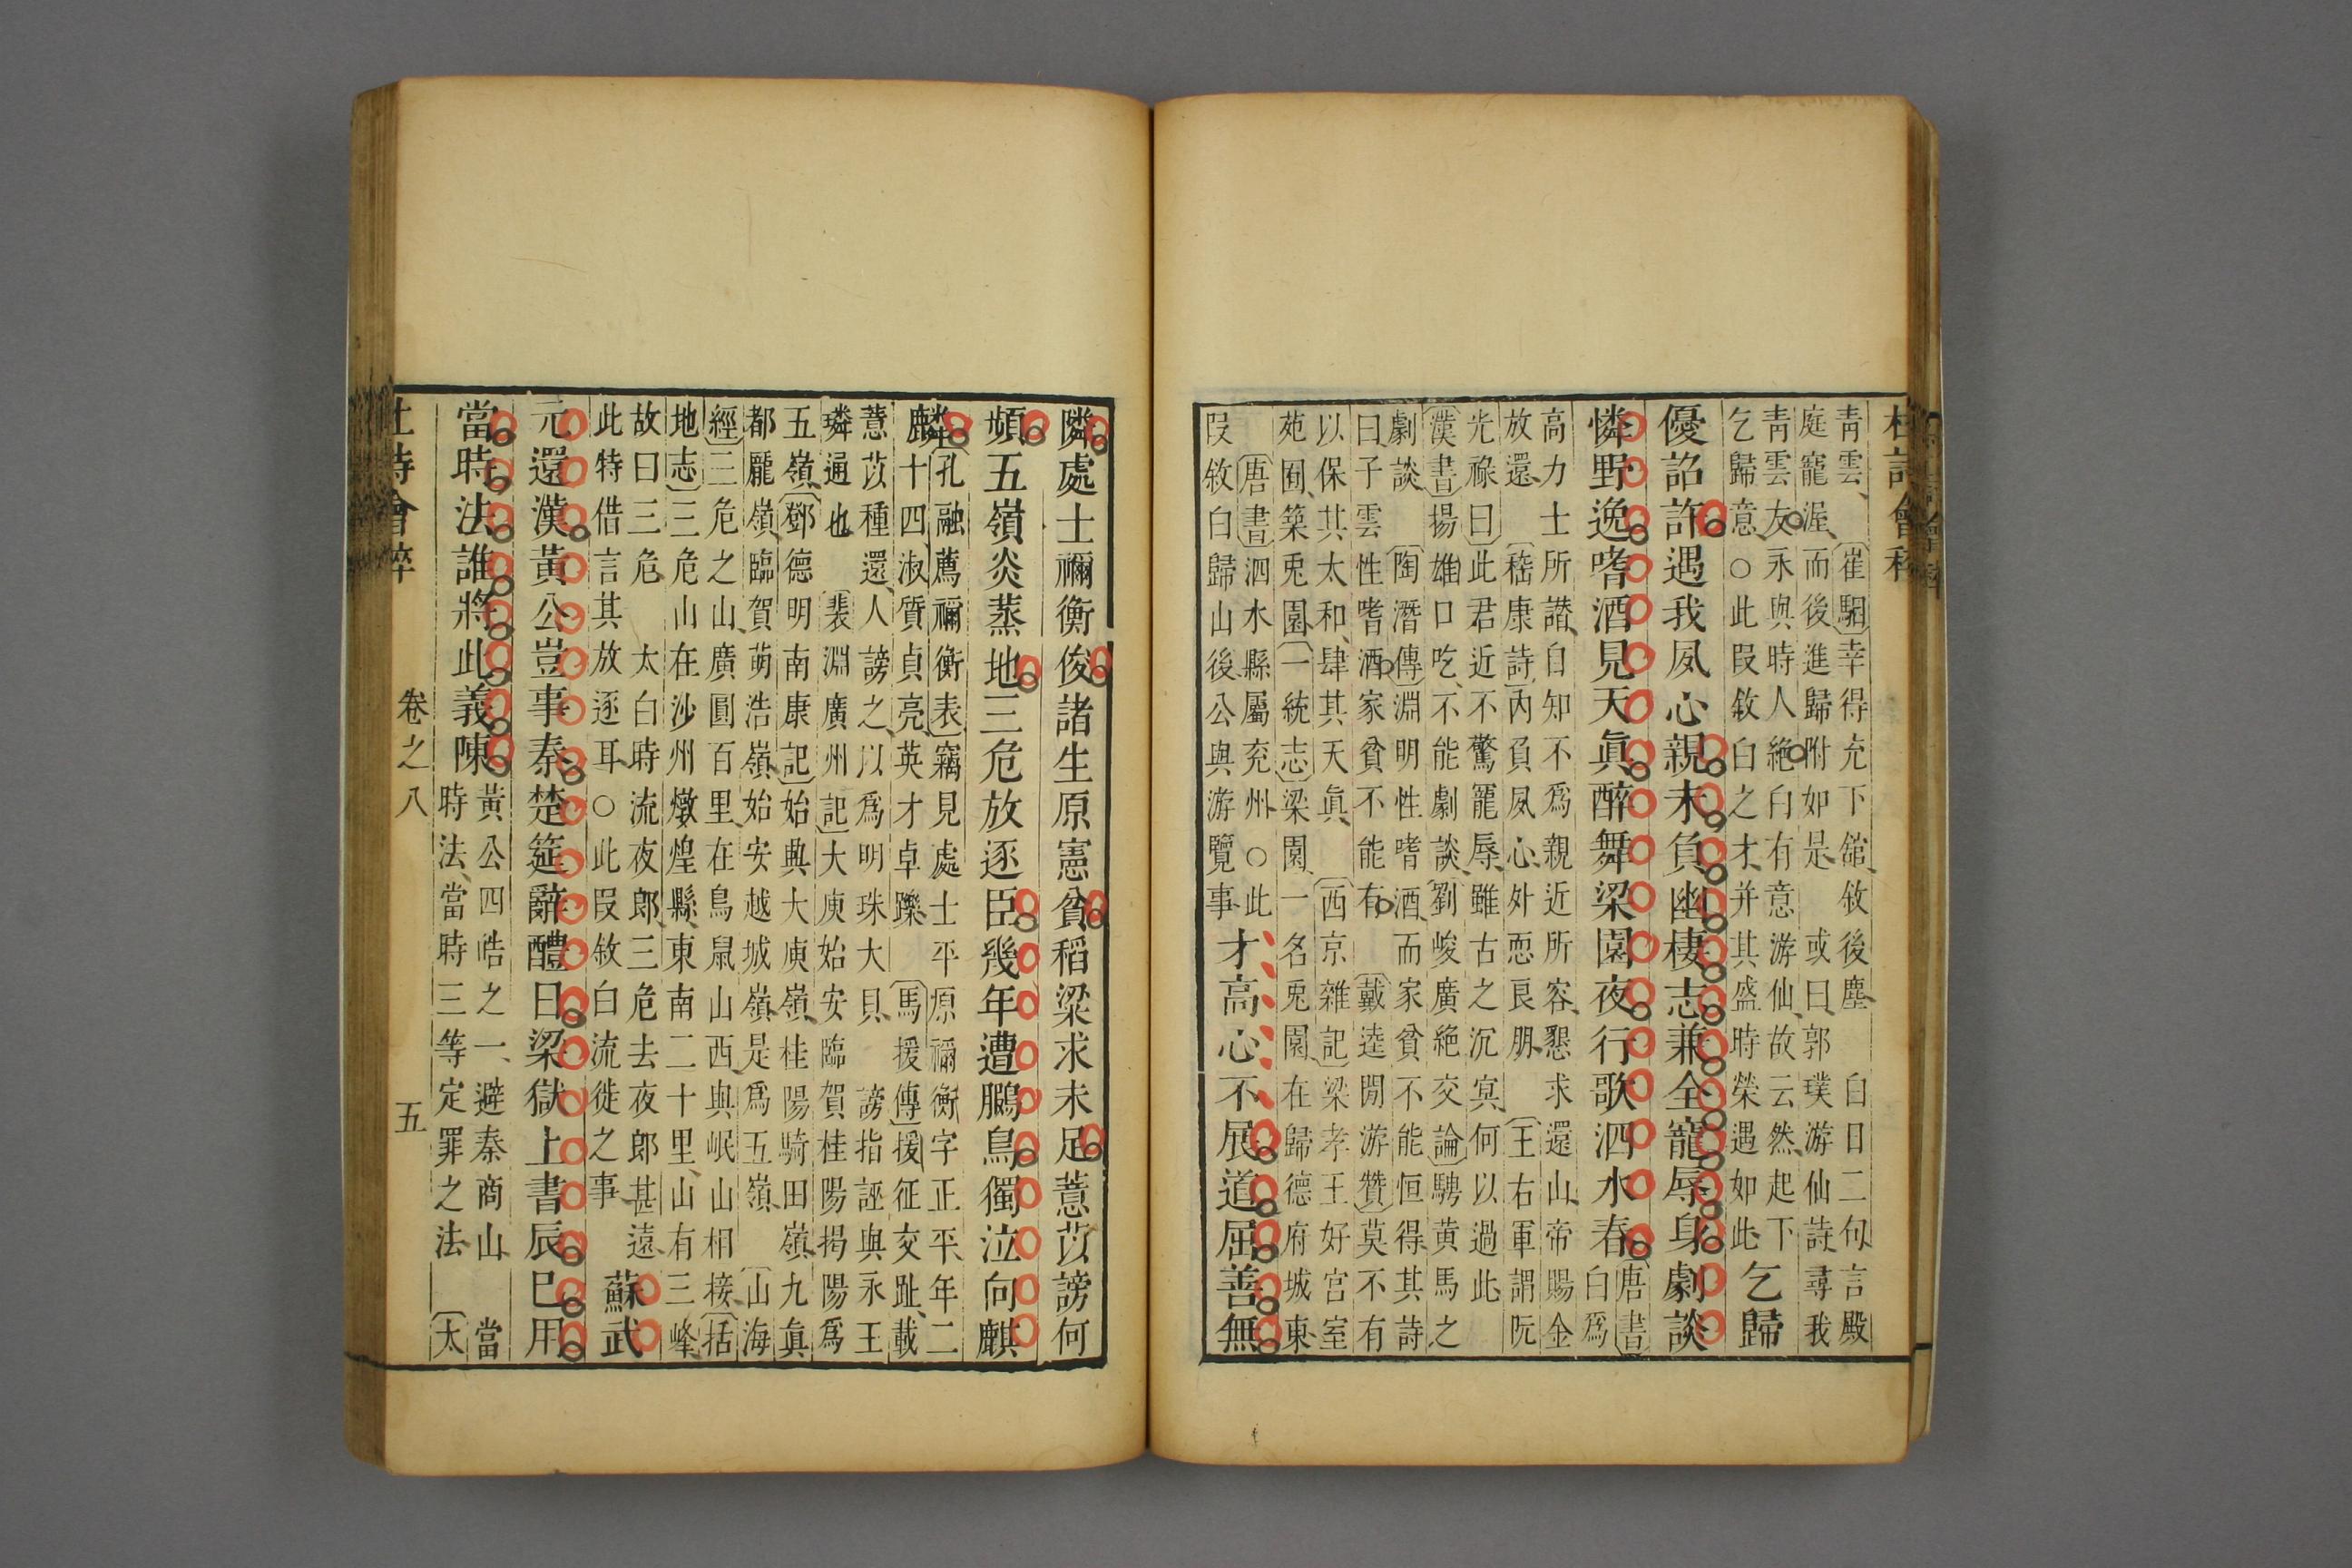 杜詩會稡
靑雲、〔崔駰〕幸得充下舘、敘後塵　白日二句言殿
庭寵渥、而後進歸附如是　或曰、郭璞游仙詩尋我
靑雲友、永與時人絶、白有意游仙、故云然、起下
乞歸意、○此段敘白之才、并其盛時榮遇如此、乞歸
優詔許遇我夙心親未負幽棲志兼全寵辱身劇談
憐野逸嗜酒見天眞醉舞梁園夜行歌泗水春〔唐書〕
白爲
高力士所譖、自知不爲親近所容、懇求還山、帝賜金
放還、〔嵇康詩〕内負夙心、外恧良朋、〔王右軍謂阮
光祿曰〕此君近不驚寵辱、雖古之沉冥、何以過此
〔漢書〕揚雄口吃、不能劇談、〔劉峻廣絶交論〕騁黃馬之
劇談〔陶潛傳〕淵明性嗜酒、而家貧不能恒得、其詩
曰子雲性嗜酒、家貧不能有〔戴逵閒游贊〕莫不有
以保其太和、肆其天眞、〔西京雜記〕梁孝王好宮室
苑囿、築兎園、〔一統志〕梁園一名兎園、在歸德府城東
〔唐書〕泗水縣屬兖州、○此
段敘白歸山後、公與游覽事
才高心不展道屈善無
隣處士禰衡俊諸生原憲貧稻粱求未足薏苡謗何
頻五嶺炎蒸地三危放逐臣幾年遭鵩鳥獨泣向麒
麟〔孔融薦禰衡表〕竊見處士平原禰衡字正平、年二
十四、淑質貞亮、英才卓躒〔馬援傳〕援征交趾、載
薏苡種還、人謗之、以爲明珠大貝、謗指誣與永王
璘通也〔裴淵廣州記〕大庾始安臨賀桂陽揭陽爲
五嶺、〔鄧德明南康記〕始興大庾嶺、桂陽騎田嶺、九真
都龎嶺、臨賀萌浩嶺、始安越城嶺、是爲五嶺、〔山海
經〕三危之山、廣圓百里、在鳥鼠山西、與岷山相接、〔括
地志〕三危山在沙州燉煌縣東南二十里、山有三峰、
故曰三危、太白時流夜郎、三危去夜郎甚遠、
此特借言其放逐耳、○此段敘白流徙之事、
蘇武
元還漢黃公豈事秦楚筵辭醴日梁獄上書辰巳用
當時法誰將此義陳
黃公四皓之一、避秦商山、當
時法、當時三等定罪之法、〔太
杜詩會稡　卷之八　五